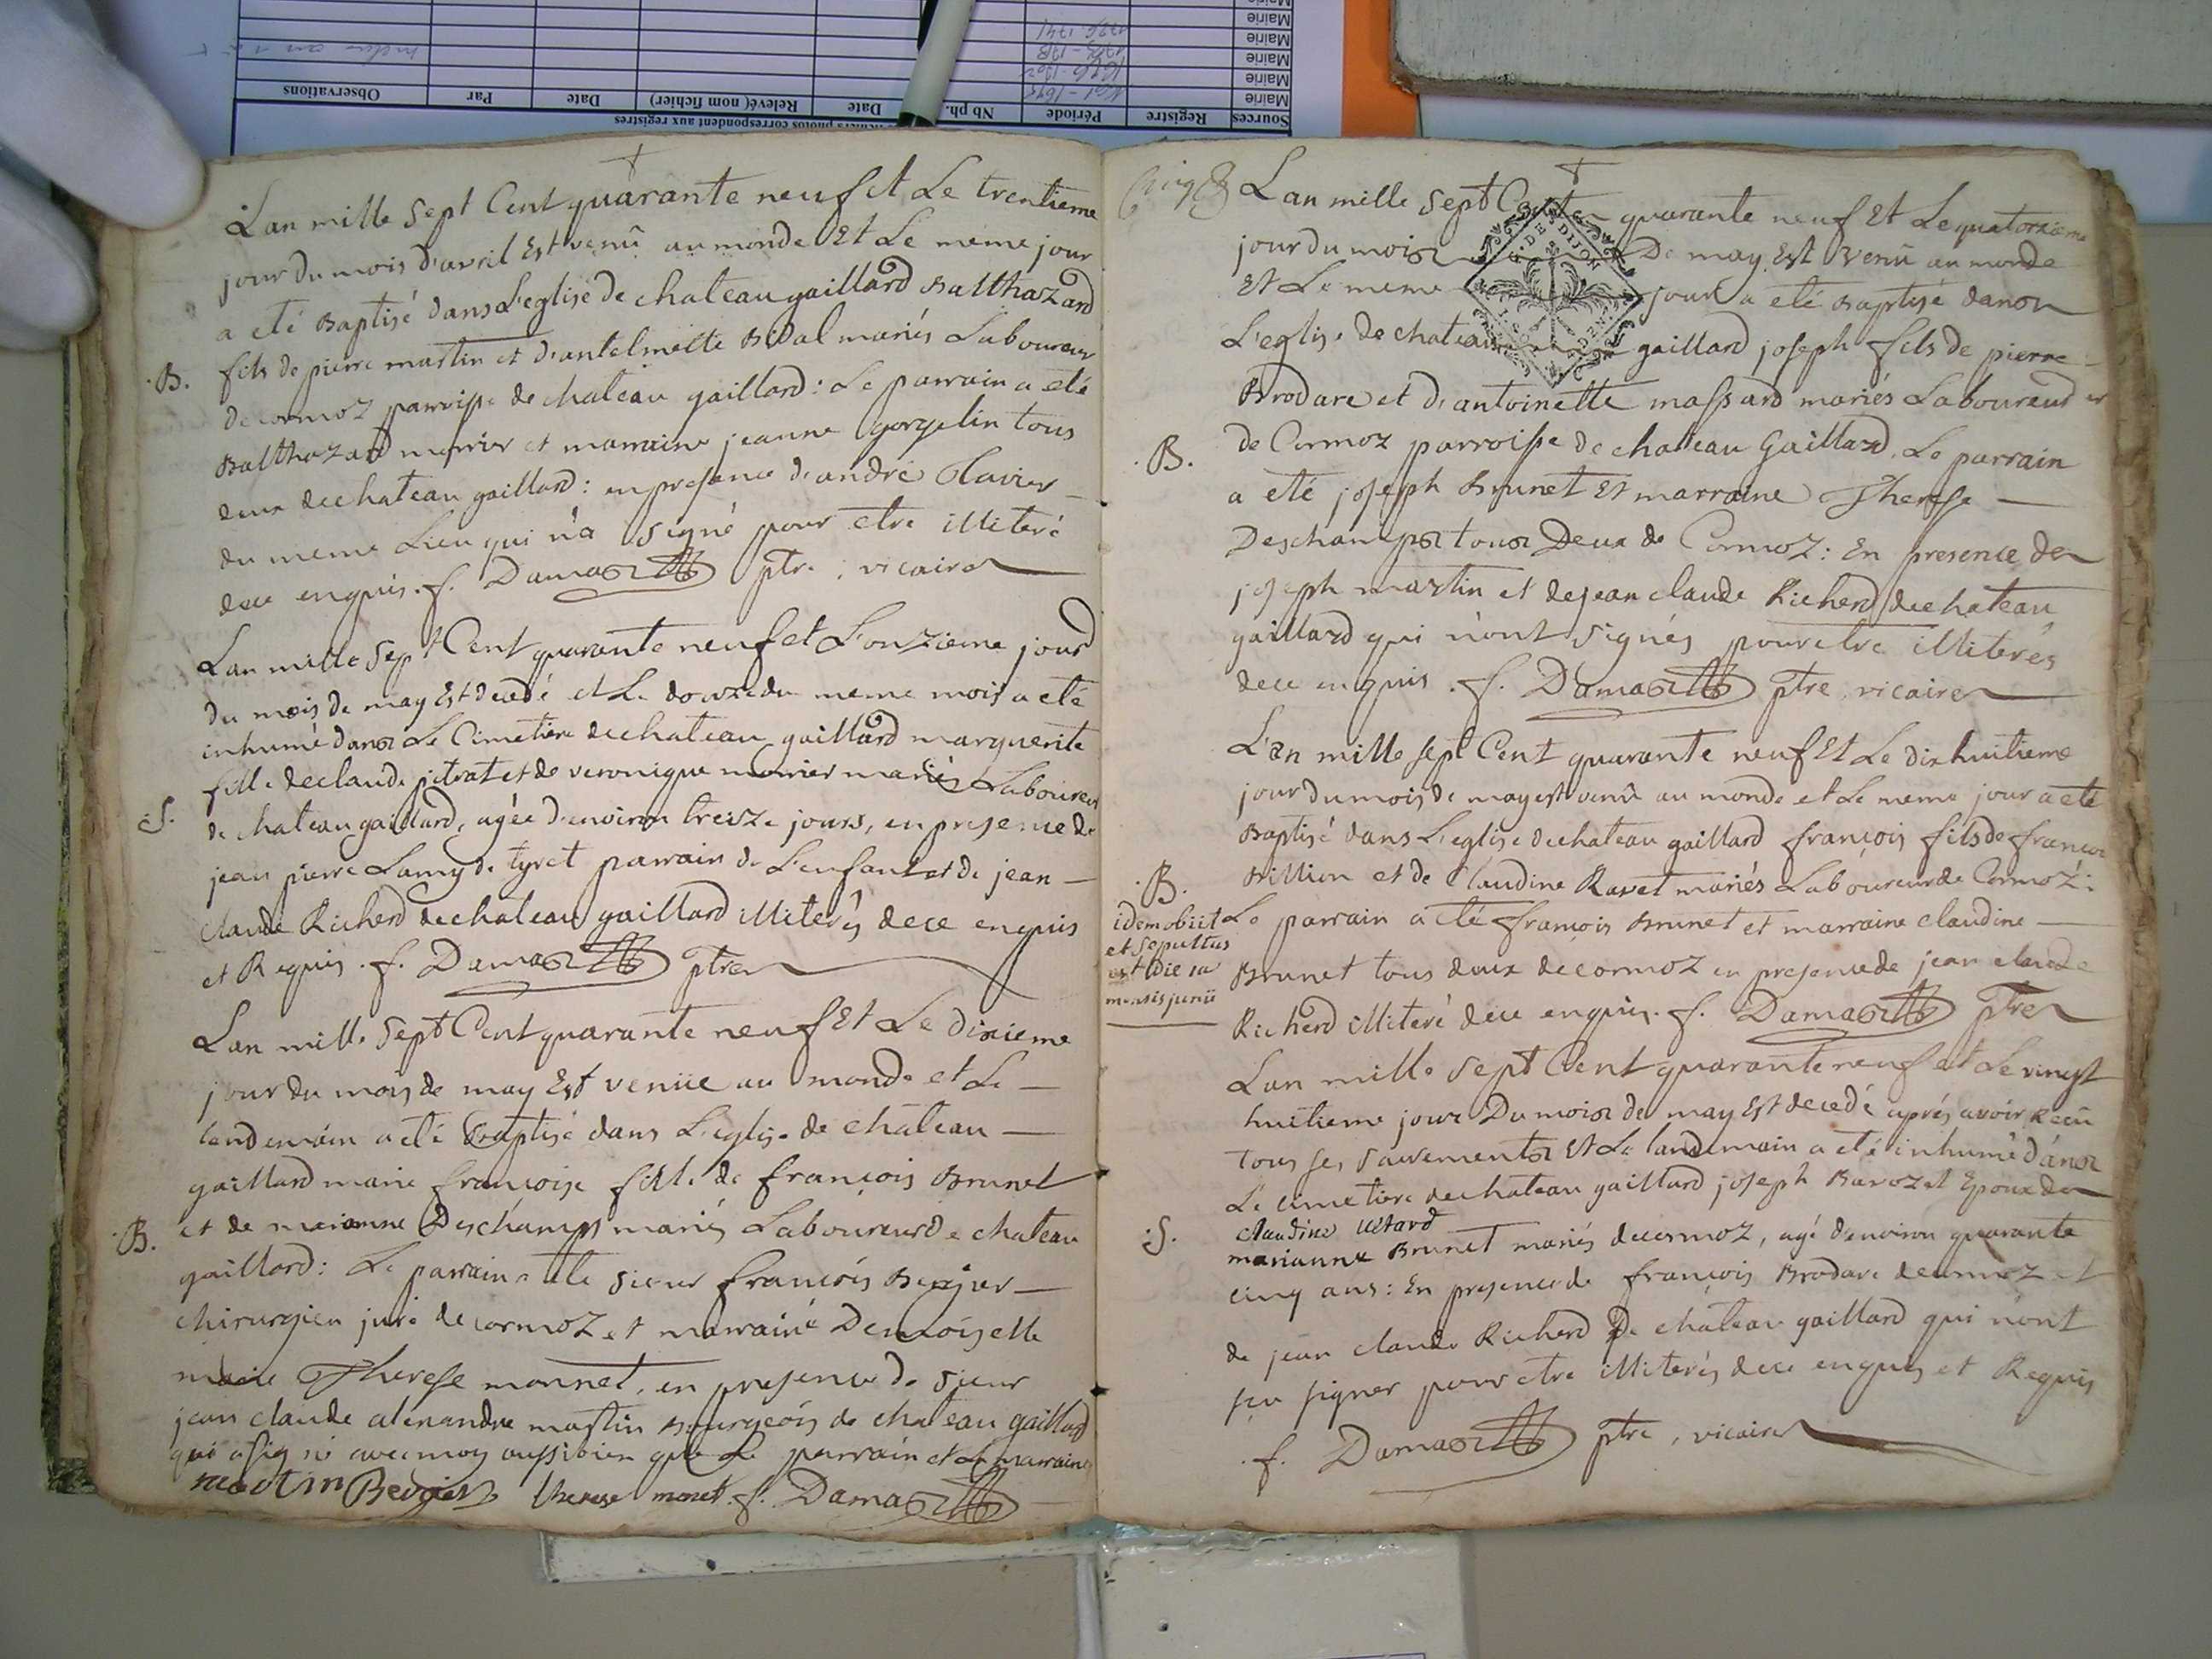 Sources
Registre
Période
Nb ph.
Date
Relevé( nom fichier)
Date
Par
Observations
Mairie
Mairie
Mairie
Mairie
Mairie
Lan mille sept Cent quarante neuf et Le trentieme
jour du mois d'avril Est venû au monde Et Le meme jour
a eté Baptisé dans L'eglise de chateau gaillard Balthazard
B. fils de pierre martin et d'antelmette Bidal mariés Laboureur
de cormoz parroisse de chateau gaillard: Le parrain a eté
Balthazard et marraine jeanne gorgelin tous
deux de chateau gaillard: en presence d'andré Clavier
du meme Lieu qui n'a signé pour etre illiteré
de ce enquis. f. Damas ptre. vicaire
Lan mille sept Cent quarante neuf et L'onzieme jour
du mois de may Est decedé et Le douze du meme mois a eté
inhumé dans Le Cimetiere de chateau gaillard marguerite
fille de claude pitrat et de veronique monier mariés Laboureur
S. de chateau gaillard, agée d'environ treize jours, en presence de
jean pierre Lamy de tyret parrain de L'enfant et de jean
claude Richerd de chateau gaillard illiterés de ce enquis
et Requis. f. Damas ptre
Lan mille sept Cent quarante neuf Et Le dixieme
jour du mois de may Est venüe au monde et Le
landemain a eté Baptisé dans L'eglise de chateau
gaillard marie françoise fille de françois Brunet
B. et de marianne Deschamps mariés Laboureur de chateau
gaillard: Le parrain a eté sieur françois Bergier
chirurgien juré de cormoz et marraine Demoiselle
marie Therese monnet, en presence de sieur
jean claude alexandre martin Bourgeois de chateau gaillard
qui a signé avec moy aussi bien que Le parrain et La marraine
martin Bergier therese monet f. Damas
Lan mille sept Cent quarante neuf Et Le quatorzieme
G. DE DIJON
jour du mois De may Est venû au monde
Et Le meme jour a eté Baptisé dans
L'eglise de chateau gaillard joseph fils de pierre
Brodare et d'antoinette massard mariés Laboureur
B. de Cormoz parroisse de chateau Gaillard. Le parrain
a eté joseph Brunet Et marraine Therese
Deschamps tous Deux de Cormoz: En presence de
joseph martin et de jean claude Richerd de chateau
gaillard qui n'ont signés pour etre illiterés
de ce enquis. f. Damas ptre vicaire
L'an mille sept Cent quarante neuf Et Le dix huitieme
jour du mois de may est venû au monde et Le meme jour a eté
Baptisé dans L'eglise de chateau gaillard françois fils de françois
B. Billion et de Claudine Ravet mariés Laboureur de Cormoz:
Le parrain a eté françois Brunet et marraine claudine
Brunet tous deux de cormoz en presence de jean claude
Richerd illiteré de ce enquis. f. Damas ptre
idem obiit
et sepultus
est die
mensis junii
Lan mille sept Cent quarante neuf et Le vingt
huitieme jour Du mois de may Est decedé aprés avoir Recû
tous ses sacrements Et Le landemain a eté inhumé dans
Le cimetiere de chateau gaillard joseph Epoux de
claudine
S. marianne Brunet mariés de cormoz, agé d'environ quarante
cinq ans: En presence de françois Brodare de cormoz et
de jean claude Richerd De chateau gaillard qui n'ont
sçu signer pour etre illiterés de ce enquis et Requis
f. Damas ptre, vicaire